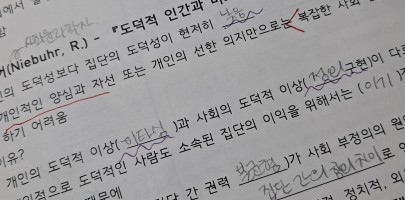 에서 살
사회윤리학자
(Niebuhr, R.) - 『도덕적 인간과
의 도덕성보다 집단의 도덕성이 현저히 낮음
개인적인 양심과 자선 또는 개인의 선한 의지만으로는 복잡한 사회
하기 어려움
이유?
개인의 도덕적 이상(이타심)과 사회의 도덕적 이상(정의구현)이 다
인적으로 도덕적인 사람도 소속된 집단의 이익을 위해서는 (이기
집단 간 권력 불균형)가 사회 부정의의 원
때문에 집단 간의 힘의 차이
정치적, 의